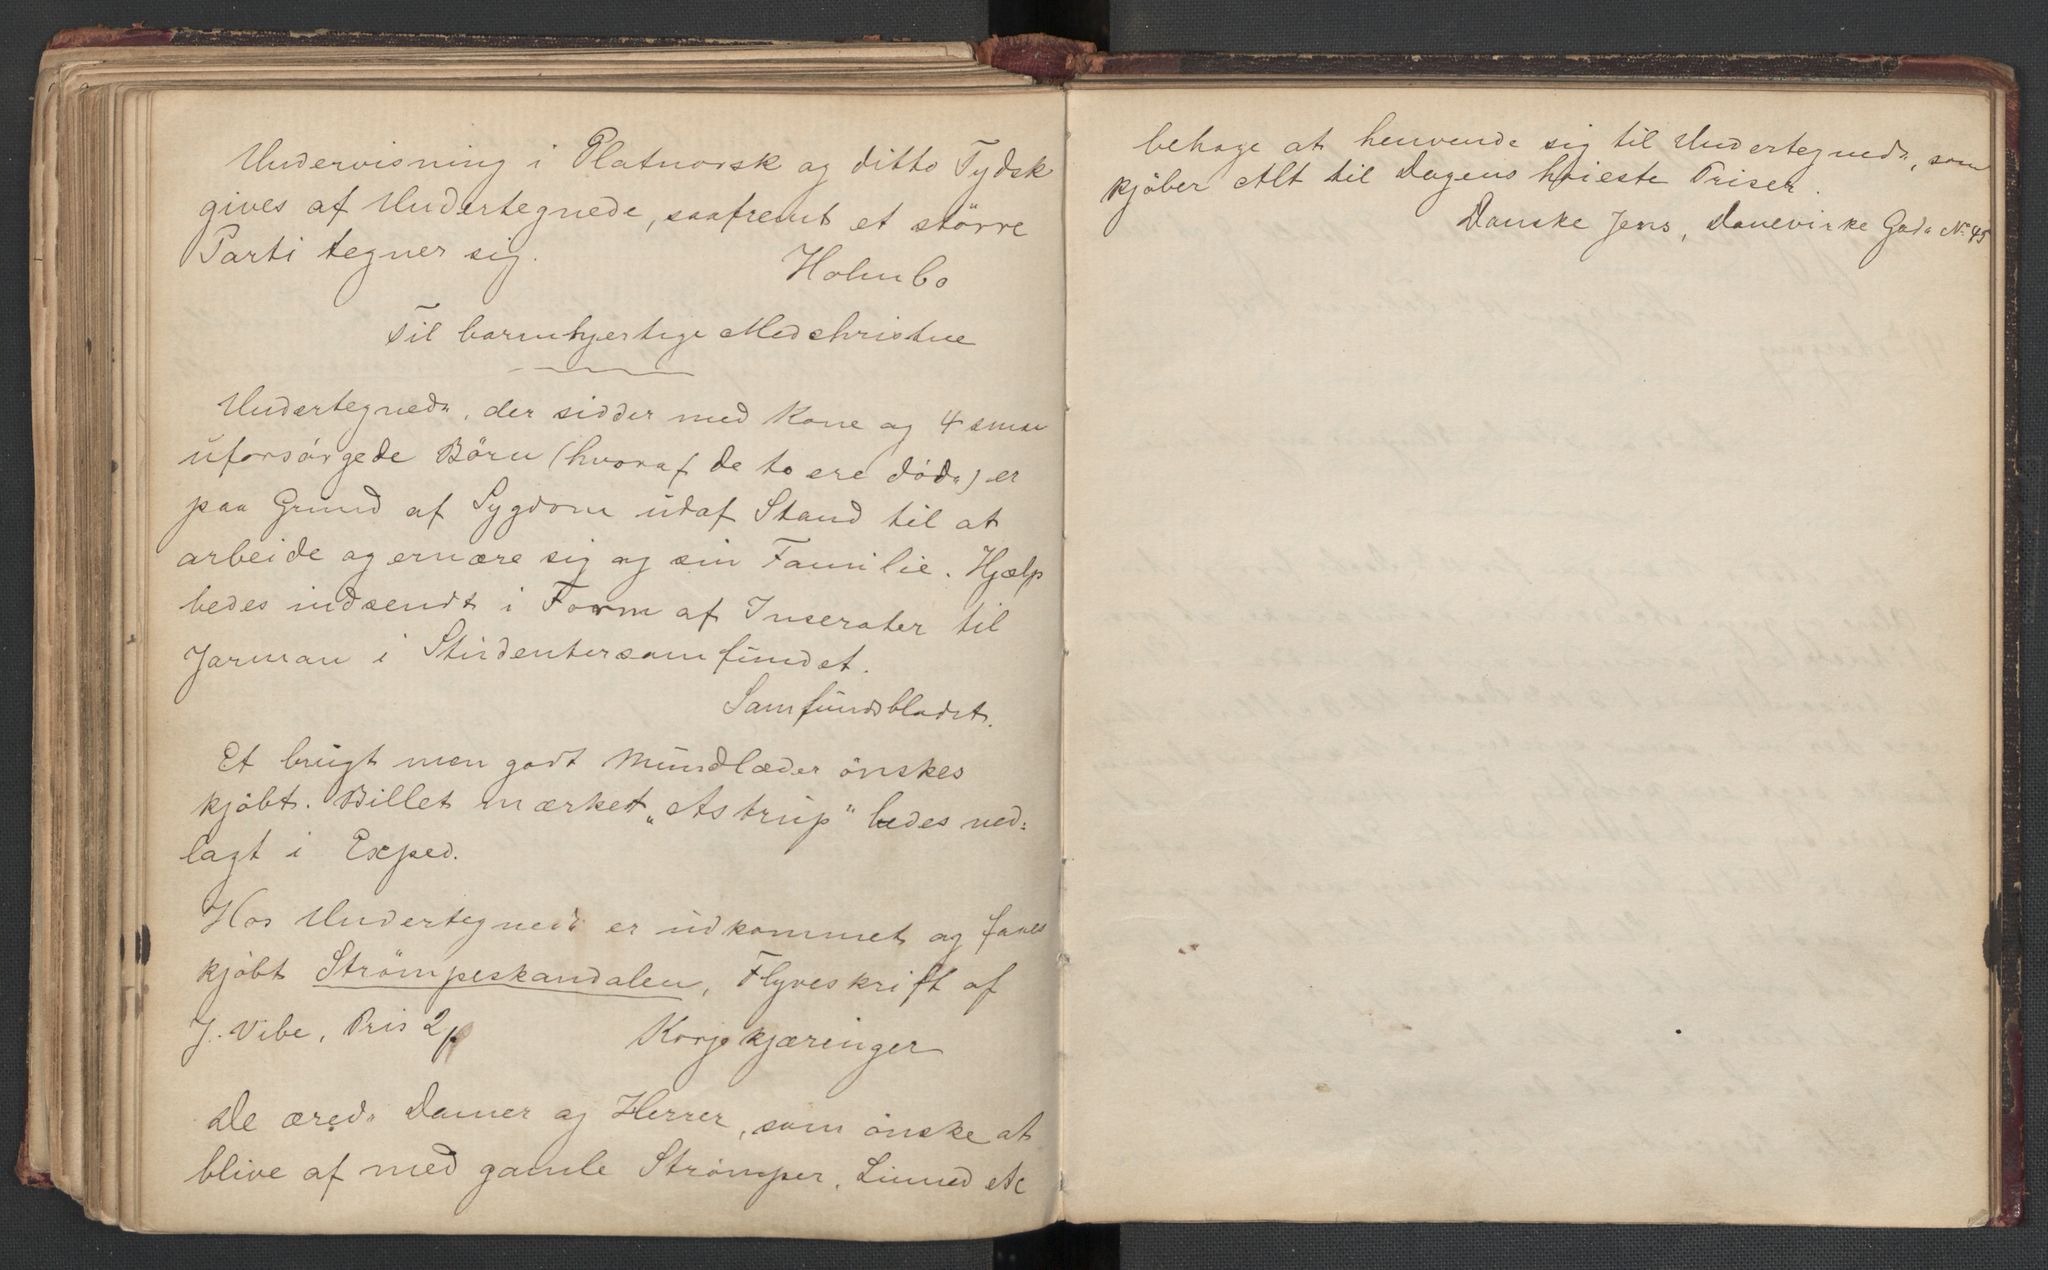 Undervisning i Platnorsk og ditto Tydsk
gives af Undertegnede, saafremt et större
Parti tegner sig.
Holmbo
Til barmhjertige Medchristne
Undertegnede, der sidder med Kone og 4 smaa
uforsörgede Börn (hvoraf de to ere döde) er
paa Grund af Sygdom udaf Stand til at
arbeide og ernære sig og sin Familie. Hjælp
bedes indsendt i Form af Inserater til
Jarman i Studentersamfundet.
Samfundsbladet.
Et brugt men godt Mundlæder önskes
kjöbt. Billet mærket „Astrup" bedes ned-
lagt i Exped.
Hos Undertegnede er udkommet og faaes
kjöbt Strömpeskandalen, Flyveskrift af
J. Vibe, Pris 2
Korjekjæringer
De ærede Damer og Herrer, som önske at
blive af med gamle Strömper, Linned etc
behage at henvende sig til Undertegnede, som
kjöber Alt til Dagens höieste Priser.
Danske Jens, Danevirke Gade No 45